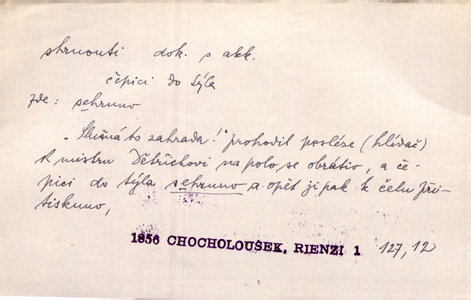 shrnouti dok. s akk.
čepici do týla
zde: sehrnuv
„Slušná to zahrada!“ prohodil posléze (hlídač)
k mistru Dětřichovi na polo se obrátiv, a če-
pici do týla sehrnuv a opět ji pak k čelu při-
tisknuv,
1856 CHOCHOLOUŠEK, RIENZI 1 127, 12